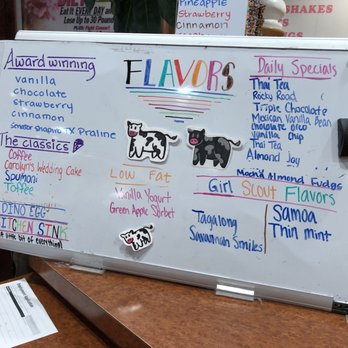 Eat It EVERY DAY and
Lose Up to 30 Pound
Pineapple
Strawberry
Cinnamon
SHAKES
Award winning
vanilla
chocolate
strawberry
cinnamon
Senator Shapiro TX Praline
The classics
Coffee
Carolyn's Wedding Cake
Spumoni
Toffee
DINO EGG
KITCHEN SINK
(A little bit of everything!)
FLAVORS
Low Fat
Vanilla Yogurt
Green Apple Sorbet
Daily Specials
Thai Tea
Rocky Road
Triple Chocolate
Mexican Vanilla Bean
chocolate oreo
Vanilla Chip
Thai Tea
Almond Joy
Mocha Almond Fudge
Girl Scout Flavors
Tagalong
Savannah Smiles
Samoa
Thin mint